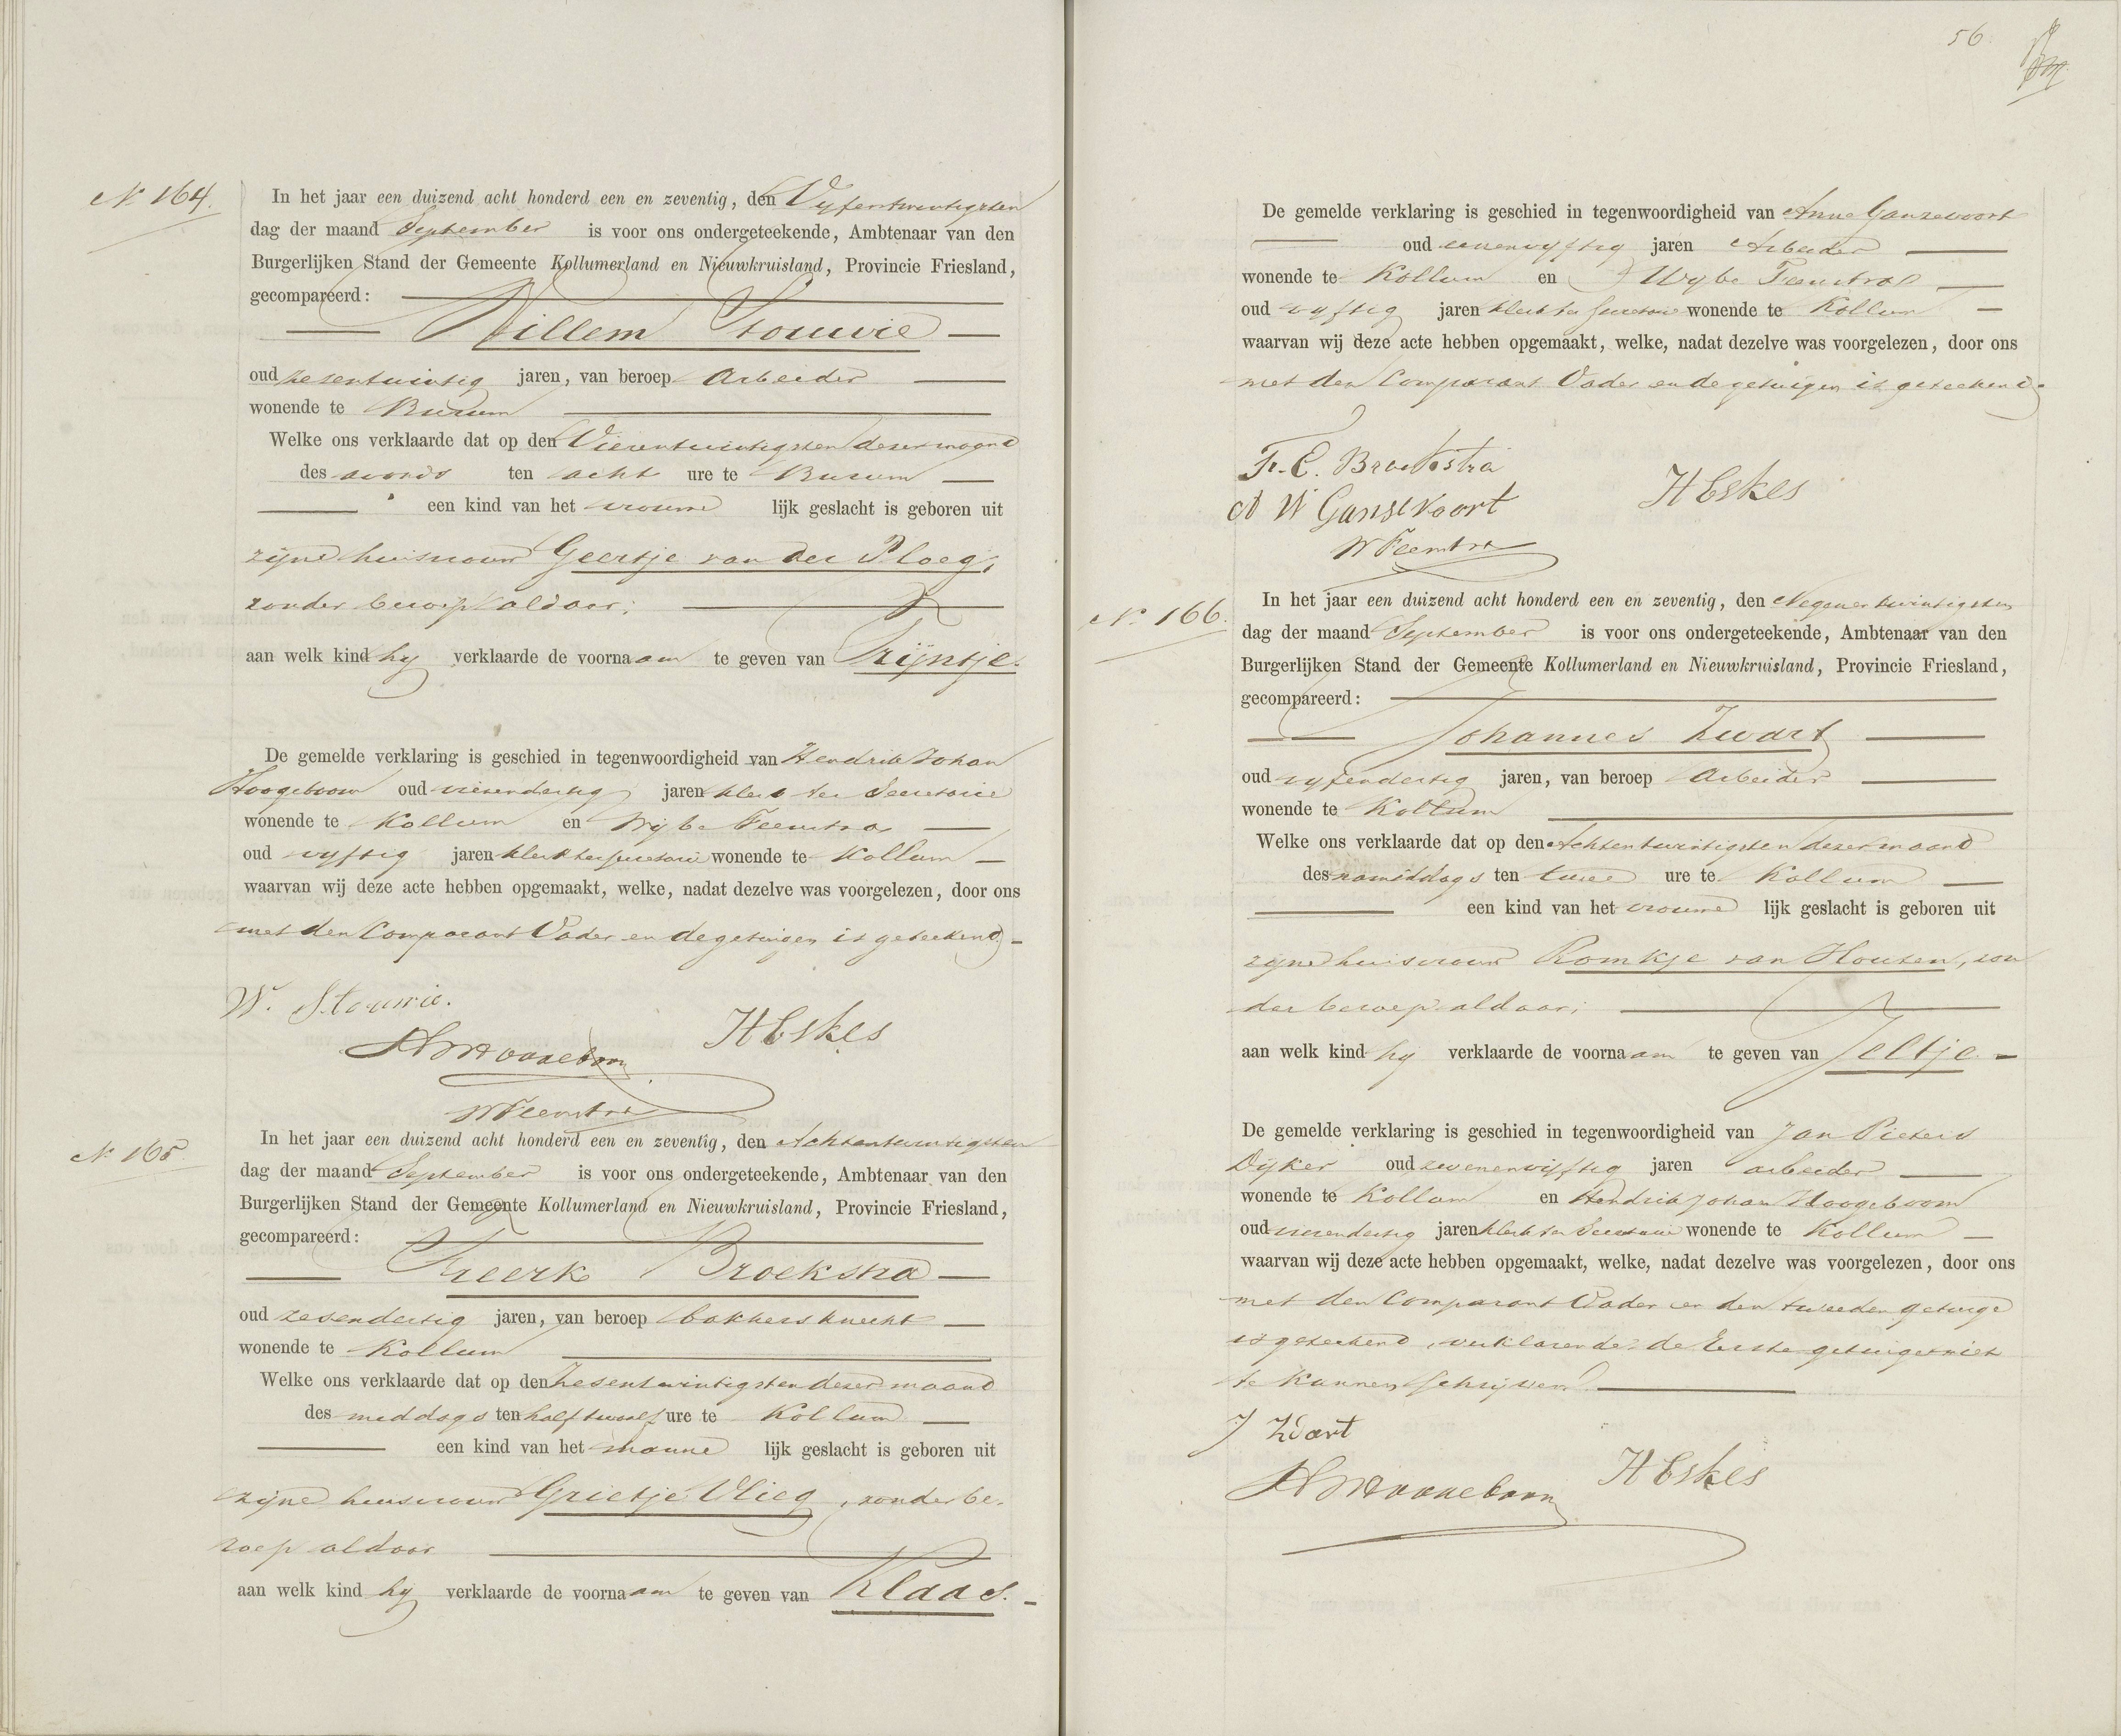 N° 164.
In het jaar een duizend acht honderd een en zeventig, den Vijfentwintigsten
dag der maand September is voor ons ondergeteekende, Ambtenaar van den
Burgerlijken Stand der Gemeente Kollumerland en Nieuwkruisland, Provincie Friesland,
gecompareerd:
Willem Stouwie
oud zesentwintig jaren, van beroep Arbeider
wonende te Burum
Welke ons verklaarde dat op den Vierentwintigsten dezer maand
des avonds ten acht ure te Burum
een kind van het vrouwe lijk geslacht is geboren uit
zijne huisvrouw Geertje van der Ploeg,
zonder beroep aldaar;
aan welk kind hij verklaarde de voornaam te geven van Trijntje.
De gemelde verklaring is geschied in tegenwoordigheid van Hendrik Johan
Hoogeboom oud vierendertig jaren klerk ter Secretarie
wonende te Kollum en Wijbe Feenstra
oud vijftig jaren klerk ter secretarie wonende te Kollum
waarvan wij deze acte hebben opgemaakt, welke, nadat dezelve was voorgelezen, door ons
met den Comparant Vader en de getuigen is geteekend.
W. Stouwie.
HJHoogeboom
HEskes
WFeenstra
N° 165
In het jaar een duizend acht honderd een en zeventig, den Achtentwintigsten
dag der maand September is voor ons ondergeteekende, Ambtenaar van den
Burgerlijken Stand der Gemeente Kollumerland en Nieuwkruisland, Provincie Friesland,
gecompareerd:
Freerk Broekstra
oud zesendertig jaren, van beroep bakkersknecht
wonende te Kollum
Welke ons verklaarde dat op den Zesentwintigsten dezer maand
des middags ten half twaalf ure te Kollum
een kind van het manne lijk geslacht is geboren uit
zijne huisvrouw Grietje Vlieg, zonder be-
roep aldaar
aan welk kind hij verklaarde de voornaam te geven van Klaas.
56
De gemelde verklaring is geschied in tegenwoordigheid van Anne Ganzevoort
oud eenenvijftig jaren Arbeider
wonende te Kollum en Wijbe Feenstra
oud vijftig jaren klerk ter secretarie wonende te Kollum
waarvan wij deze acte hebben opgemaakt, welke, nadat dezelve was voorgelezen, door ons
met den Comparant Vader en de getuigen is geteekend.
F. C. Broekstra
A W Gansevoort
HEskes
WFeenstra
N° 166.
In het jaar een duizend acht honderd een en zeventig, den Negenentwintigsten
dag der maand September is voor ons ondergeteekende, Ambtenaar van den
Burgerlijken Stand der Gemeente Kollumerland en Nieuwkruisland, Provincie Friesland,
gecompareerd:
Johannes Zwart
oud vijfendertig jaren, van beroep Arbeider
wonende te Kollum
Welke ons verklaarde dat op den Achtentwintigsten dezer maand
des namiddags ten twee ure te Kollum
een kind van het vrouwe lijk geslacht is geboren uit
zijne huisvrouw Romkje van Houten, zon
der beroep aldaar;
aan welk kind hij verklaarde de voornaam te geven van Jeltje.
De gemelde verklaring is geschied in tegenwoordigheid van Jan Pieters
Dijker oud zevenenvijftig jaren arbeider
wonende te Kollum en Hendrik Johan Hoogeboom
oud vierendertig jaren klerk ter Secretarie wonende te Kollum
waarvan wij deze acte hebben opgemaakt, welke, nadat dezelve was voorgelezen, door ons
met den Comparant Vader en den tweeden getuige
is geteekend, verklarende de Eerste getuige niet
te kunnen schrijven.
J Zwart
HJHoogeboom
HEskes